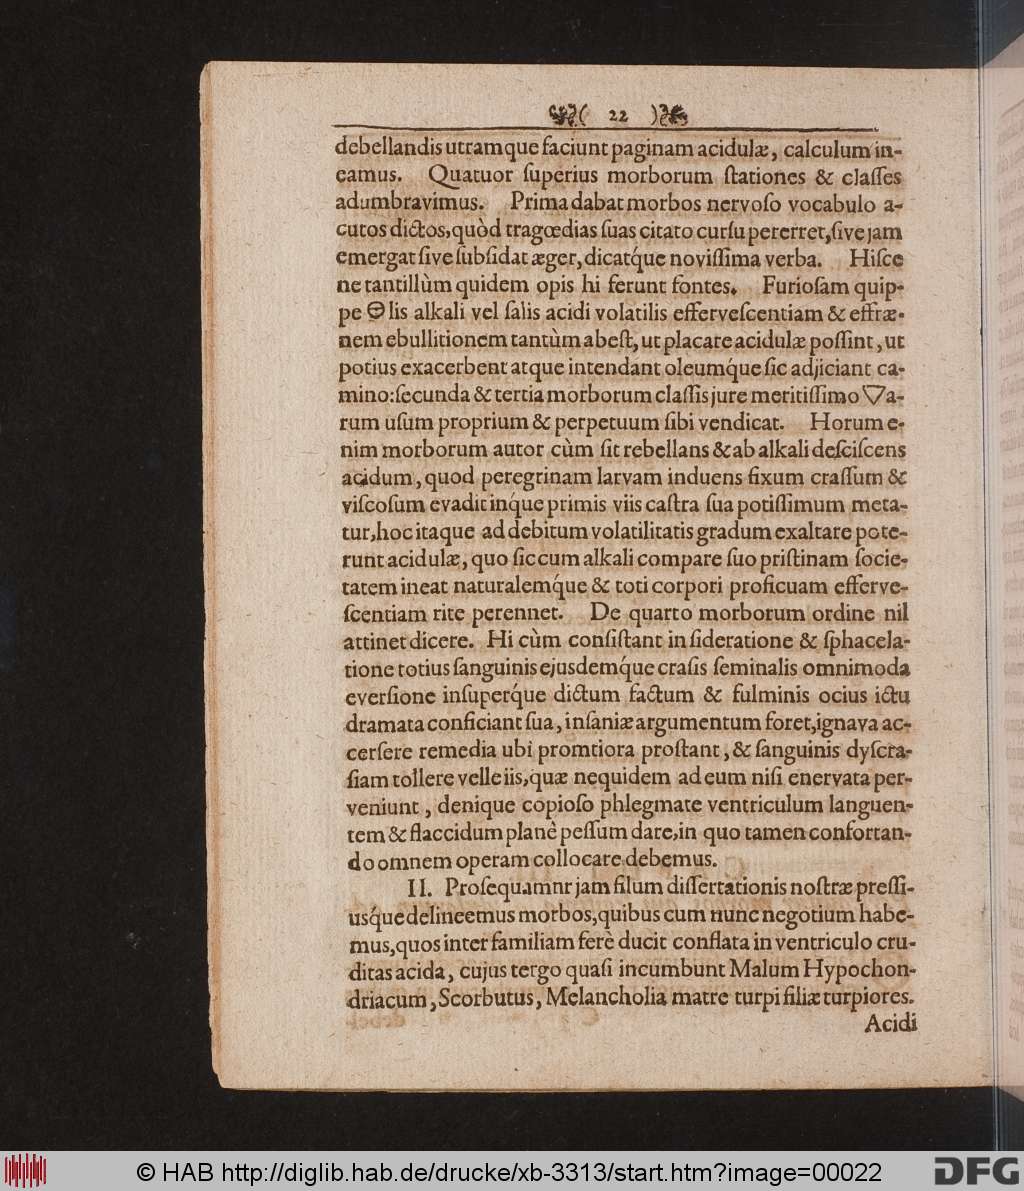 ( 22 )
debellandis utramque faciunt paginam acidulæ, calculum in-
eamus. Quatuor ſuperius morborum ſtationes & claſſes
adumbravimus. Prima dabat morbos nervoſo vocabulo a-
cutos dictos, quòd tragœdias ſuas citato curſu pererret, ſive jam
emergat ſive ſubſidat æger, dicatq́ue noviſſima verba. Hiſce
ne tantillùm quidem opis hi ferunt fontes. Furioſam quip-
pe 🜔lis alkali vel ſalis acidi volatilis efferveſcentiam & effræ-
nem ebullitionem tantùm abeſt, ut placare acidulæ poſſint, ut
potius exacerbent atque intendant oleumq́ue ſic adjiciant ca-
mino: ſecunda & tertia morborum claſſis jure meritiſſimo 🜄a-
rum uſum proprium & perpetuum ſibi vendicat. Horum e-
nim morborum autor cùm ſit rebellans & ab alkali deſciſcens
acidum, quod peregrinam larvam induens fixum craſſum &
viſcoſum evadit inq́ue primis viis caſtra ſua potiſſimum meta-
tur, hoc itaque ad debitum volatilitatis gradum exaltare pote-
runt acidulæ, quo ſic cum alkali compare ſuo priſtinam ſocie-
tatem ineat naturalemq́ue & toti corpori proficuam efferve-
ſcentiam rite perennet. De quarto morborum ordine nil
attinet dicere. Hi cùm conſiſtant in ſideratione & ſphacela-
tione totius ſanguinis ejusdemq́ue craſis ſeminalis omnimoda
everſione inſuperq́ue dictum factum & fulminis ocius ictu
dramata conficiant ſua, inſaniæ argumentum foret, ignava ac-
cerſere remedia ubi promtiora proſtant, & ſanguinis dyſcra-
ſiam tollere velle iis, quæ nequidem ad eum niſi enervata per-
veniunt, denique copioſo phlegmate ventriculum languen-
tem & flaccidum planè peſſum dare, in quo tamen confortan-
do omnem operam collocare debemus.
II. Proſequamnr jam filum diſſertationis noſtræ preſſi-
usq́ue delineemus morbos, quibus cum nunc negotium habe-
mus, quos inter familiam ferè ducit conflata in ventriculo cru-
ditas acida, cujus tergo quaſi incumbunt Malum Hypochon-
driacum, Scorbutus, Melancholia matre turpi filiæ turpiores.
Acidi
© HAB http://diglib.hab.de/drucke/xb-3313/start.htm?image=00022
DFG